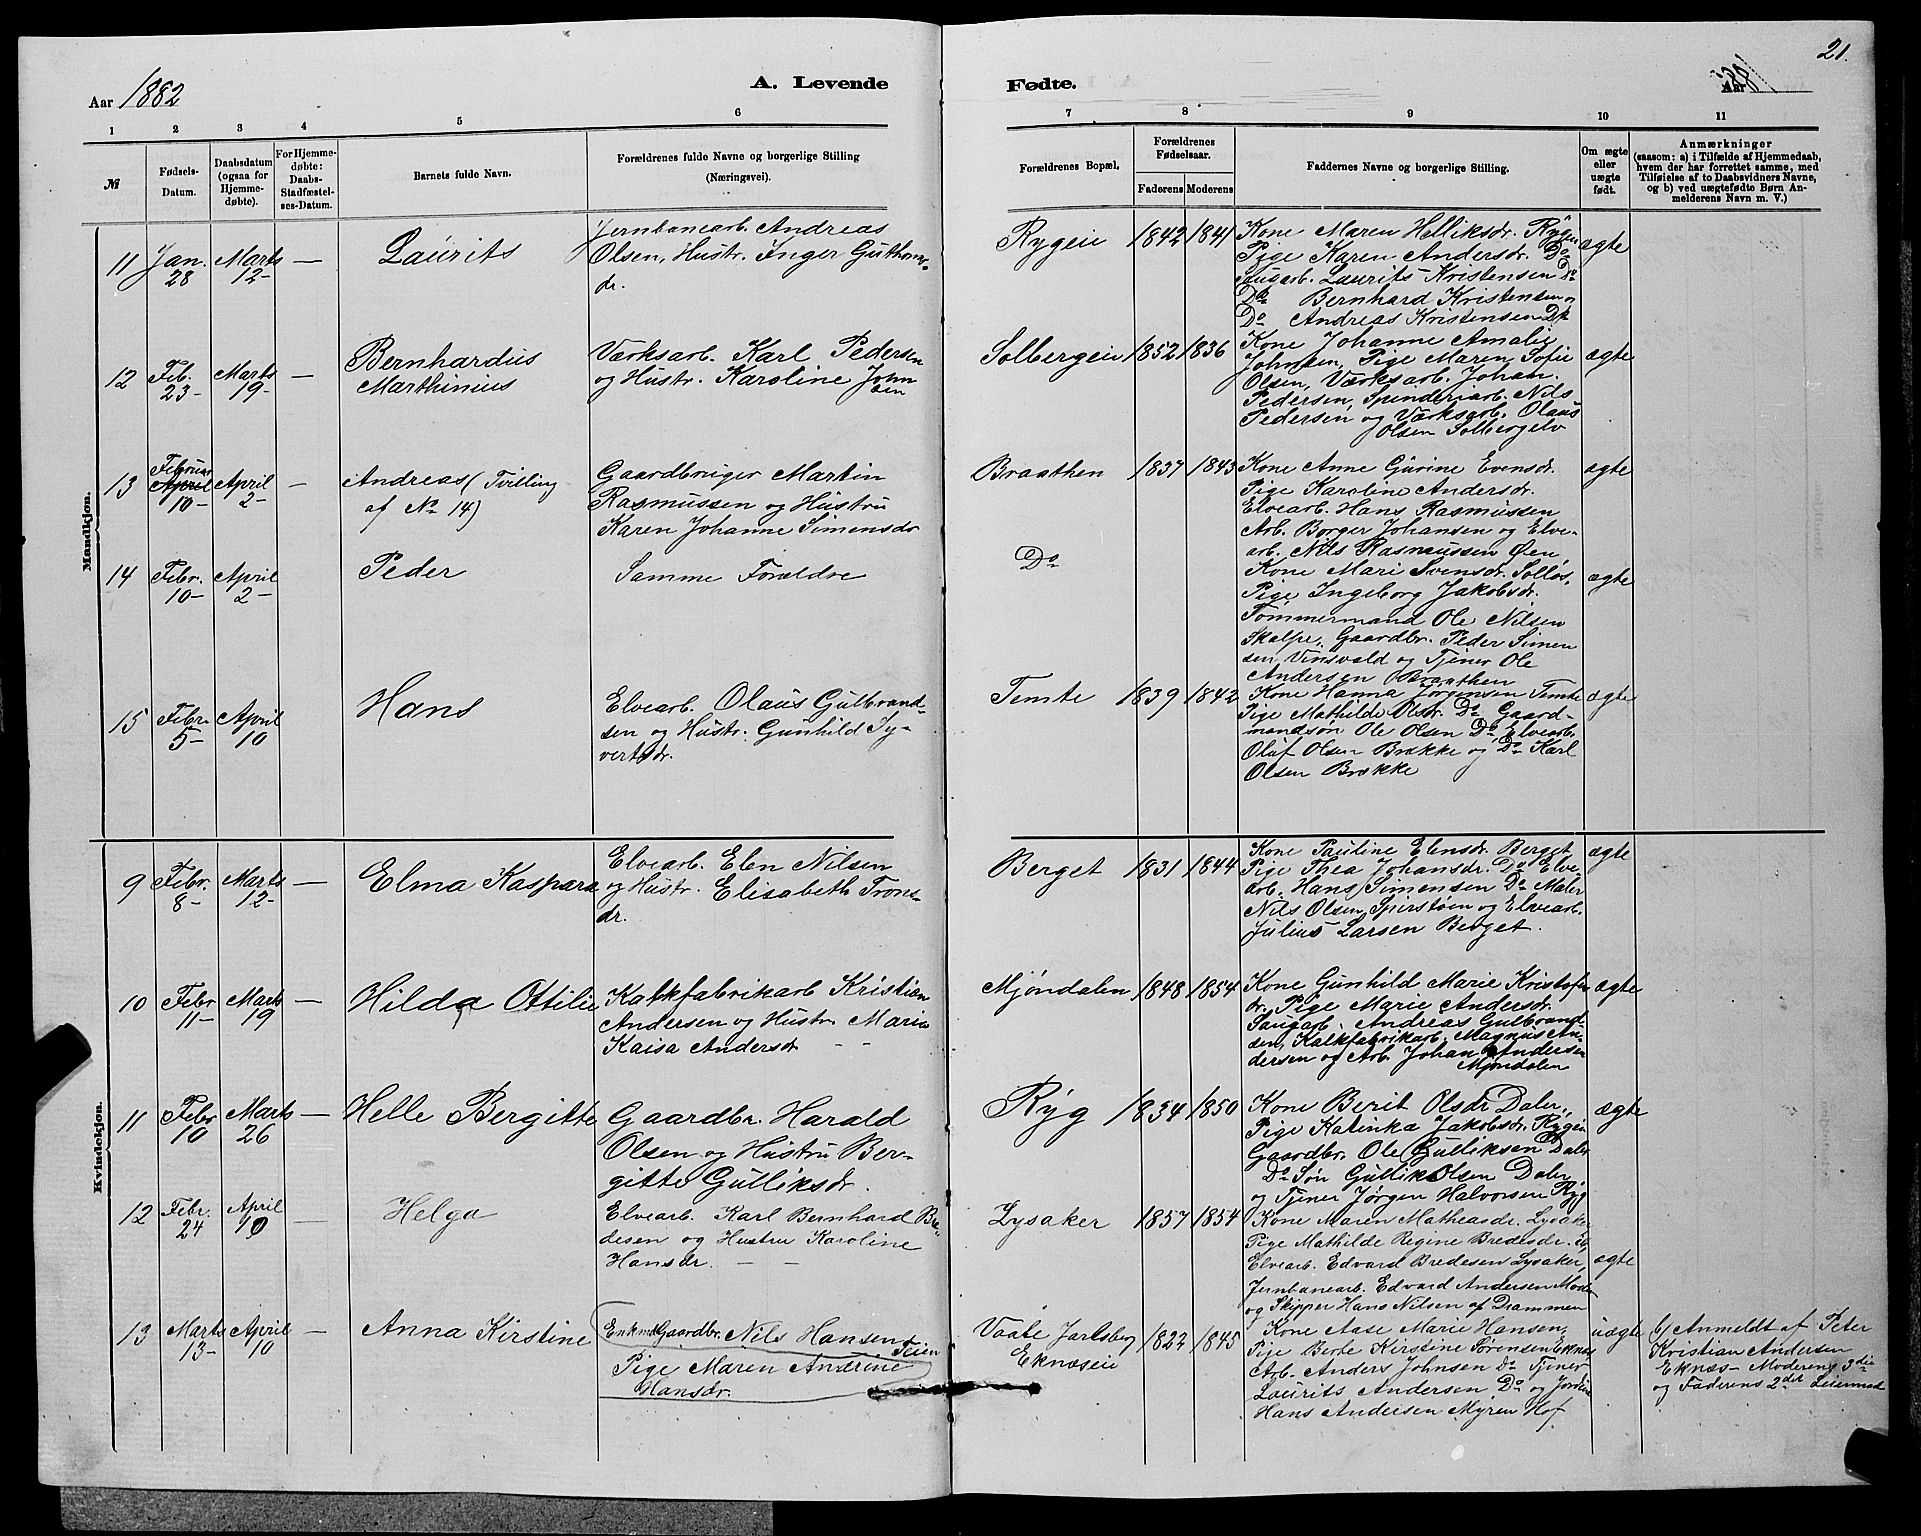 21.
Aar 1882
A. Levende
Fødte.
Aar 1882
1
2
3
4
5
6
7
8
9
10
11
№
Fødsels-
Datum.
Daabsdatum
(ogsaa for
Hjemme-
døbte).
For Hjemme-
døbte:
Daabs-
Stadfæstel-
ses-Datum.
Barnets fulde Navn.
Forældrenes fulde Navne og borgerlige Stilling
(Næringsvei).
Forældrenes Bopæl,
Forældrenes
Fødselsaar.
Faderens
Moderens
Faddernes Navne og borgerlige Stilling.
Om ægte
eller
uægte
født.
Anmærkninger
(saasom: a) i Tilfælde af Hjemmedaab,
hvem der har forrettet samme, med
Tilføielse af to Daabsvidners Navne,
og b) ved uægtefødte Børn An-
melderens Navn m. V.)
Mandkjøn.
11 Jan. 28 Marts 12- — Laurits
Jernbanearb. Andreas
Olsen, Hustr. Inger Guthoms-
dr.
Rygeie 1842 1841
Kone Maren Helliksdr. Rygeie
Pige Karen Andersdr. Do
Saugarb. Laurits Kristensen Do
Do Bernhard Kristensen og
Do Andreas Kristensen Do
ægte
12 Feb. 23- Marts 19- — Bernhardus
Marthinius
Værksarb. Karl Pedersen
og Hustr. Karoline John
sen
Solbergeie 1852 1836
Kone Johanne Amalie
Johnsen, Pige Maren Sofie
Olsen, Værksarb. Johan
Pedersen, Spinderiarb. Nils
Pedersen og Værksarb. Olaus
Olsen Solbergelv
ægte
13 Februar April 10- April 2- — Andreas (Tvilling
af No 14)
Gaardbruger Martin
Rasmussen og Hustru
Karen Johanne Simensdr
Braathen 1837 1843
Kone Anne Gurine Evensdr.
Pige Karoline Andersdr.
Elvearb. Hans Rasmussen
Arb. Borger Johansen og Elve-
arb. Nils Rasmussen Øen,
ægte
14 Febr. 10- April 2- Peder
Samme Forældre
Do
Kone Mari Svensdr. Solløs,
Pige Ingeborg Jakobsdr.
Tømmermand Ole Nilsen
Skalpe, Gaardbr. Peder Simen
sen, Vinsvold og Tjener Ole
Andersen Braathen
ægte
15 Febr 5- April 10 Hans
Elvearb. Olaus Gulbrand-
sen og Hustr. Gunhild Sy-
vertsdr.
Temte 1839 1842
Kone Hanna Jørgensen Temte
Pige Mathilde Olsdr. Do Gaard-
mandsøn Ole Olsen Do, Elvearb.
Oluf Olsen Brække og Do Karl
Olsen Brække
ægte
Kvindekjøn.
9 Febr. 8- Marts 12- — Elma Kaspara
Elvearb. Elen Nilsen
og Hustr. Elisabeth Trons-
dr.
Berget 1831 1844
Kone Pauline Elensdr. Berget
Pige Thea Johansdr. Do Elve-
arb. Hans Simensen Do Maler
Nils Olsen, Spirstøen og Elvearb.
Julius Larsen Berget.
ægte
10 Febr 11- Marts 19 — Hilda Ottilie
Kalkfabrikarb Kristian
Andersen og Hustr. Marie
Kaisa Andersdr
Mjøndalen 1848 1854
Kone Gunhild Marie Kristofers
dr, Pige Marie Andersdr.
Saugarb. Andreas Gulbrand-
sen, Kalkfabrikarb. Magnus An-
dersen og Arb. Johan Andersen
Mjøndalen
ægte
11 Febr 10 Marts 26 — Helle Bergitte
Gaardbr. Harald
Olsen og Hustru Ber-
gitte Gulliksdr.
Ryg 1834 1850
Kone Berit Olsdr Daler,
Pige Katinka Jakobsdr. Rygeie
Gaardbr. Ole Gulliksen Daler
Do Søn Gullik Olsen Daler
og Tjener Jørgen Halvorsen Ryg
ægte
12 Febr. 24 April 10 — Helga
Elvearb. Karl Bernhard Bre-
desen og Hustru Karoline
Hansdr.
Lysaker 1857 1854
Kone Maren Matheasdr. Lysaker
Pige Mathilde Regine Bredesdr. ib,
Elvearb. Edvard Bredesen Lysaker,
Jernbanearb. Edvard Andersen Moen
og Skipper Hans Nilsen af Drammen
ægte
13 Marts 13- April 10 — Anna Kirstine
Enkmd Gaardbr. Nils Hansen Teien
Pige Maren Andrine
Hansdr.
Vaale Jarlsberg
Eknæseie
1822 1845
Kone Aase Marie Hansen,
Pige Berte Kirstine Sørensen Eknæs
Arb. Anders Johnsen Do Tjener
Laurits Andersen Do og
Hans Andersen Myren Hof
uægte
b) Anmeldt af Peter
Kristian Andersen
Eknæs- Moderens 3die
og Faderens 2det Leiermaal